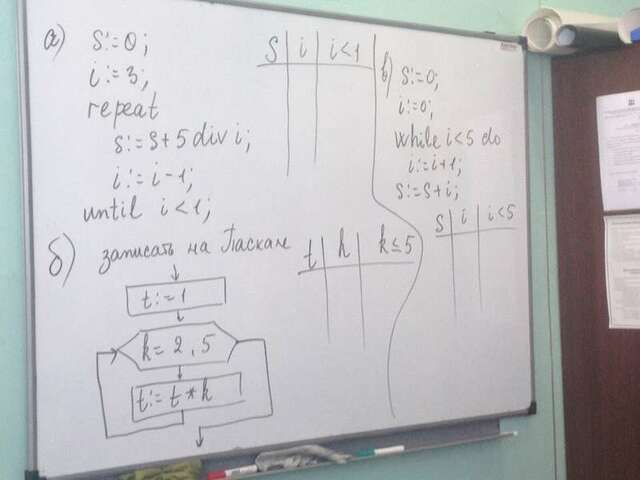 а) s:=0;
i:=3;
repeat
s:=s+5 div i;
i:=i-1;
until i<1;
s i i<1
б) записать на Паскале
t:=1
k=2,5
t:=t*k
t k k≤5
в) s:=0;
i:=0;
while i<5 do
i:=i+1;
s:=s+i;
s i i<5